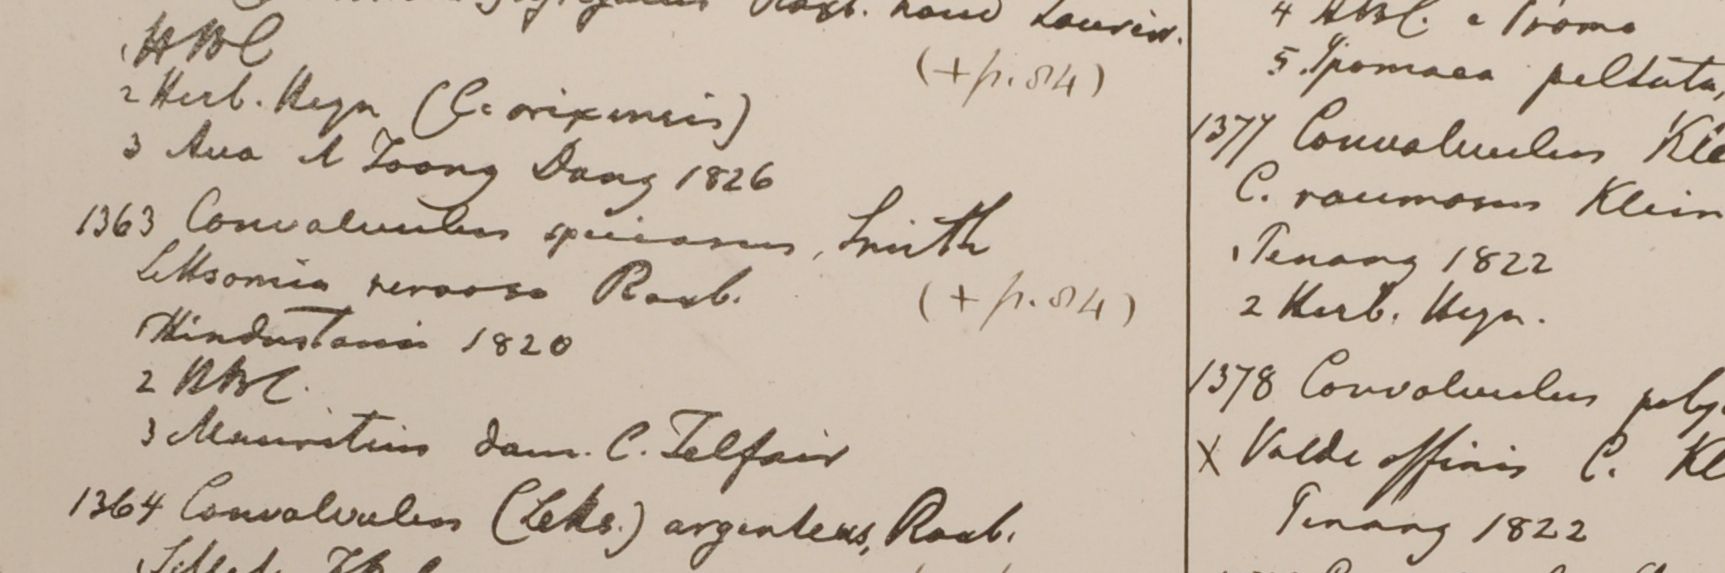 Roxb. haud Loureir.
1 HBC
(+ p. 84)
2 Herb. Heyn (C. orixensis)
3 Ava ad Toong Dang 1826
1363 Convolvulus speciosus, Smith
Lettsomia nervosa Roxb.
(+ p. 84)
1 Hindustania 1820
2 HBC.
3 Mauritius dom. C. Telfair
1364 Convolvulus (Letts.) argenteus, Roxb.
4 HBC. e Promo
5. Ipomaea peltata,
1377 Convolvulus Kle
C. racemosus Klein
1 Penang 1822
2 Herb. Heyn.
1378 Convolvulus poly
X Valde affinis C. Kl
Penang 1822